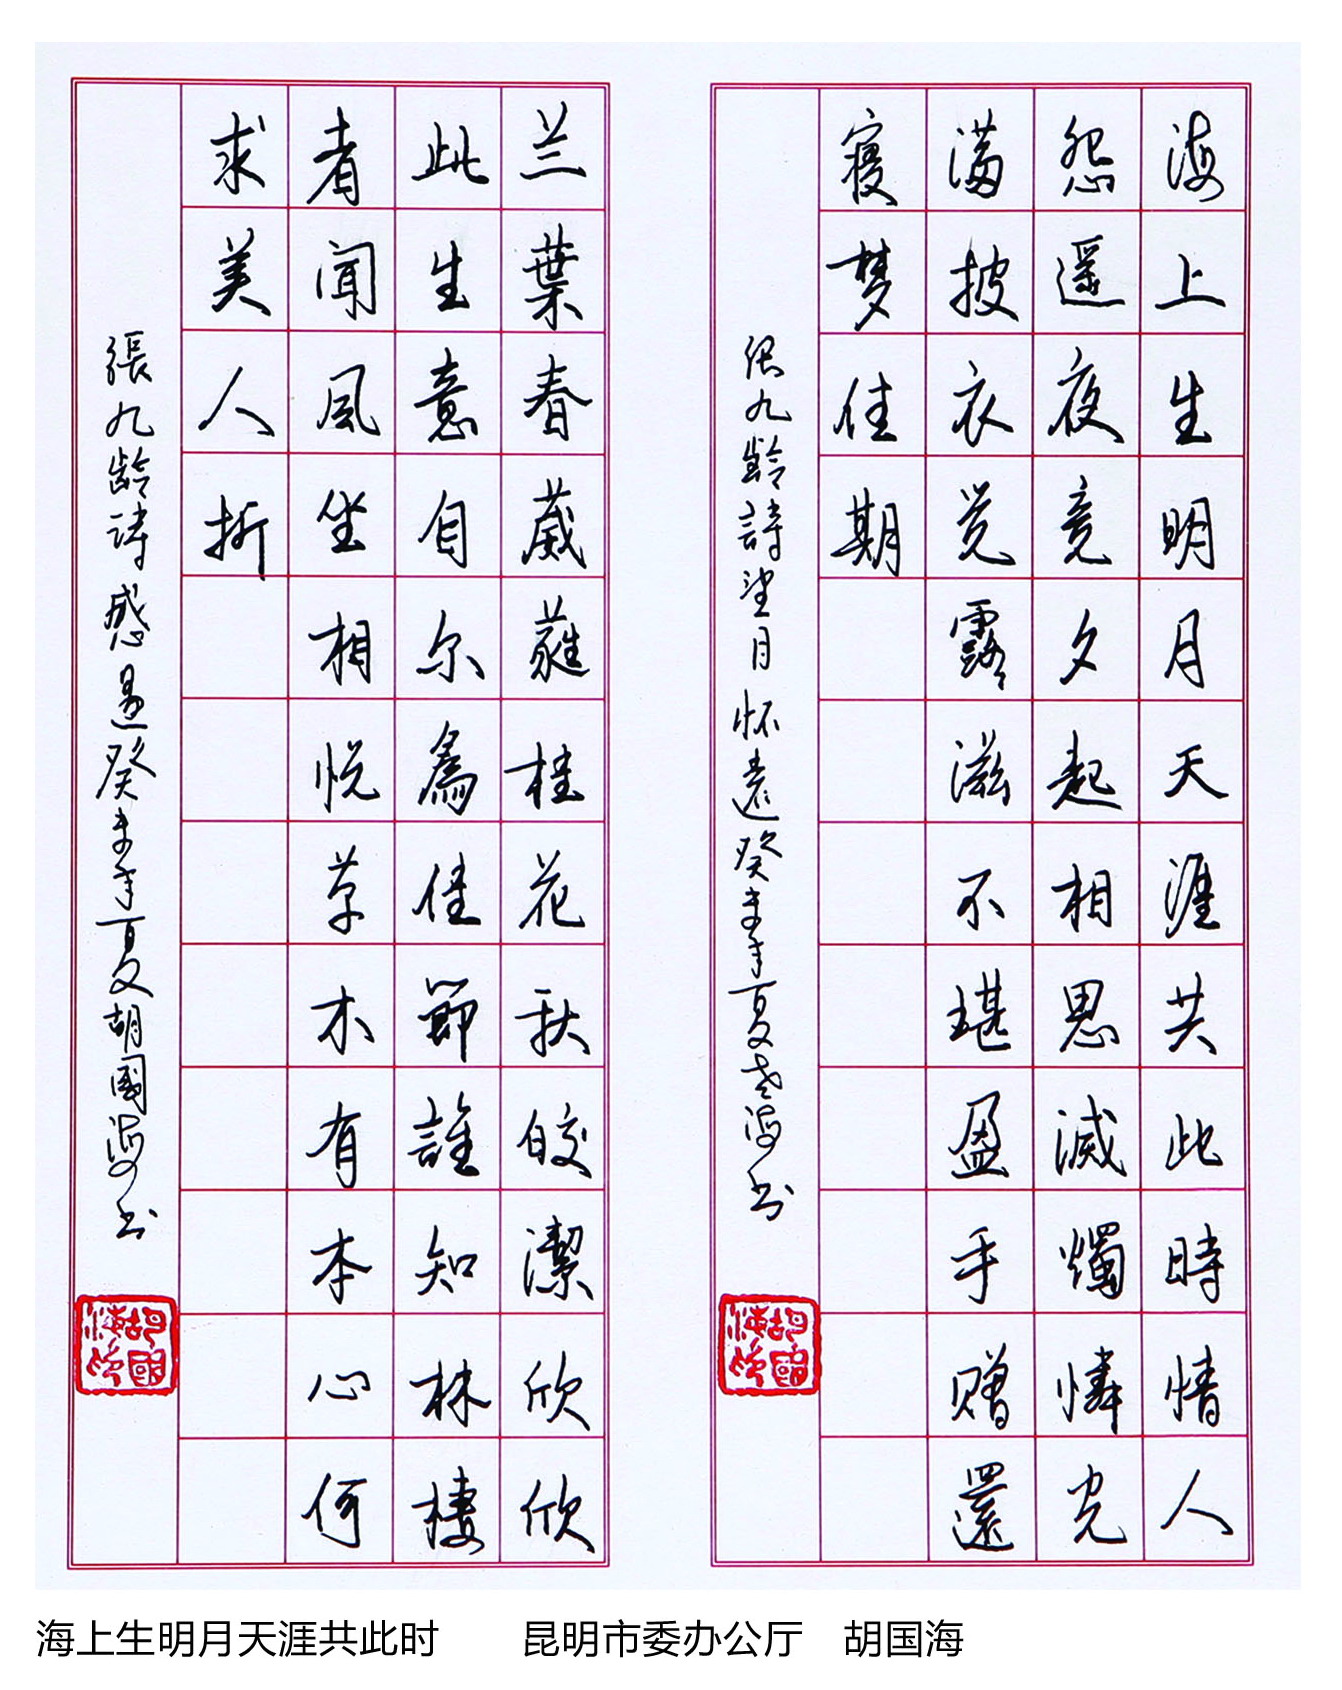 海上生明月天涯共此時情人
怨遥夜竟夕起相思滅燭憐光
满披衣觉露滋不堪盈手赠還
寝梦佳期
张九齡詩望月怀遠癸未年夏老海书
胡國海印
兰葉春葳蕤桂花秋皎潔欣欣
此生意自尔為佳節誰知林棲
者闻風坐相悦草木有本心何
求美人折
張九龄诗感遇癸未年夏胡國海书
胡國海印
海上生明月天涯共此时 昆明市委办公厅 胡国海